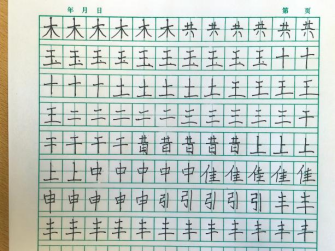 年 月 日 第 页
木木木木木木共共共共共共
玉玉玉玉玉玉玉玉玉玉十十
十十十土土土土土土王王王
王二二二二二二二二二二干
干干干干昔昔昔昔昔上上上
上上中中中中中佳佳佳佳佳
申申申申申引引引引引丰丰
丰丰丰丰丰丰丰丰丰丰丰丰